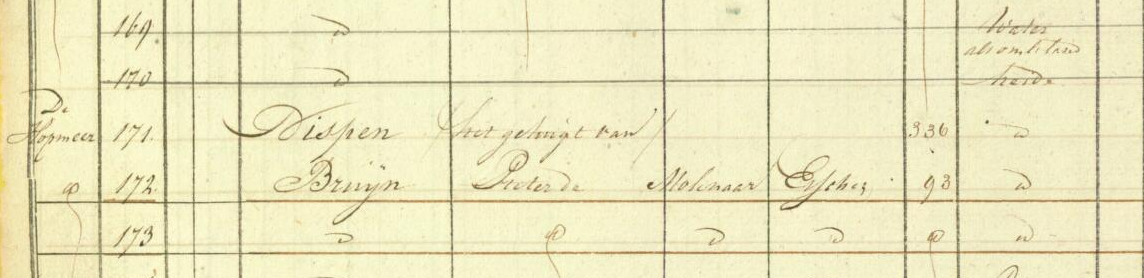 169 d Water
als ontl. land
170 d heide
De
Hopmeer 171 Dispen (het gehugt van) 336 d
d 172 Bruijn Pieter de Molenaar Essche 93 d
173 d d d d d d